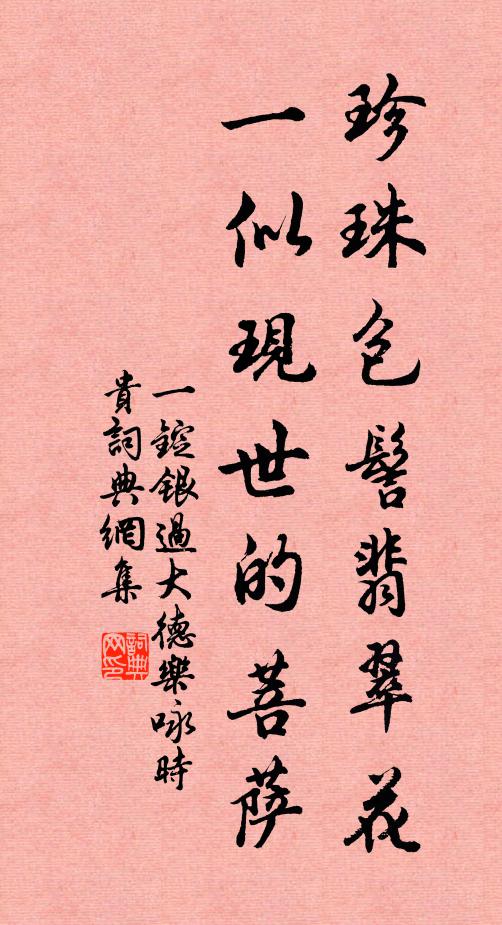 珍珠包髻翡翠花
一似現世的菩薩
一錠銀過大德樂咏時
貴詞典網集
詞典網印